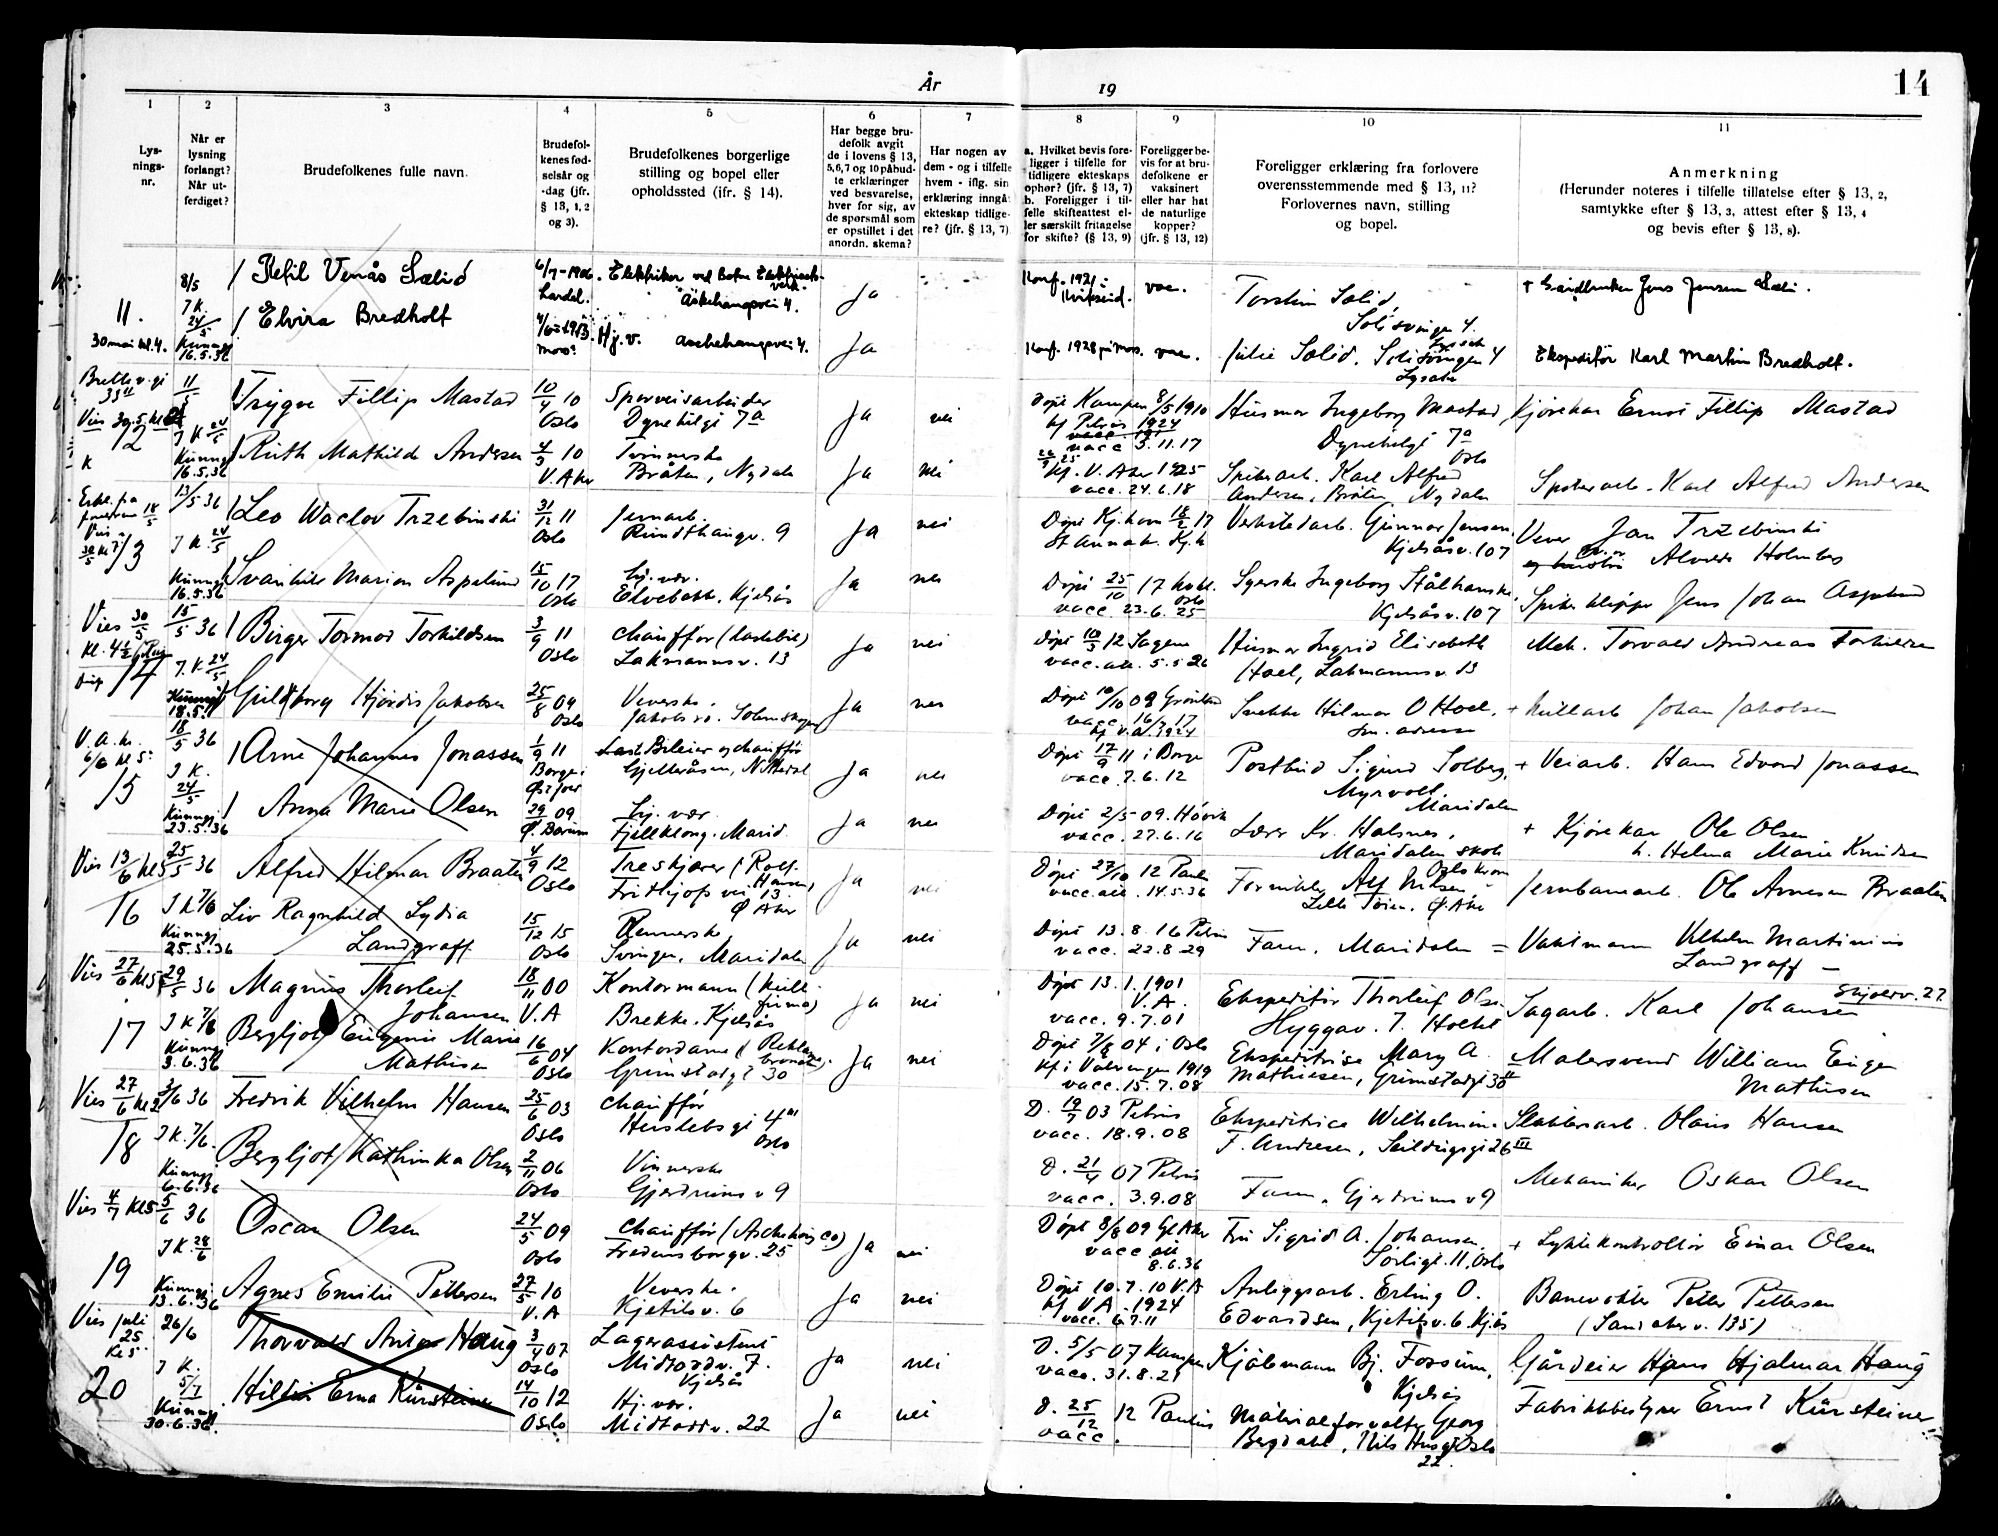 År 19
14
1 2 3 4 5 6 7 8 9 10 11
Lys-
nings-
nr.
Når er
lysning
forlangt?
Når ut-
ferdiget?
Brudefolkenes fulle navn.
Brudefol-
kenes fød-
selsår og
-dag (jfr.
§ 13, 1, 2
og 3).
Brudefolkenes borgerlige
stilling og bopel eller
opholdssted (ifr. § 14).
Har begge bru-
defolk avgit
de i lovens § 13,
5,6,7 og 10 påbud-
te erklæringer
ved besvarelse,
hver for sig, av
de spørsmål som
er opstillet i det
anordn. skema?
Har nogen av
dem - og i tilfelle
hvem - iflg. sin
erklæring inngåt
ekteskap tidlige-
re? (jfr. § 13, 7)
a. Hvilket bevis fore-
ligger i tilfelle for
tidligere ekteskaps
ophør? (jfr. § 13, 7)
b. Foreligger i til-
felle skifteattest el-
ler særskilt fritagelse
for skifte? (§ 13, 9)
Foreligger be-
vis for at bru-
defolkene er
vaksinert
eller har hat
de naturlige
kopper?
(jfr. § 13, 12)
Foreligger erklæring fra forlovere
overensstemmende med § 13, 11?
Forlovernes navn, stilling
og bopel.
Anmerkning
(Herunder noteres i tilfelle tillatelse efter § 13, 2,
samtykke efter § 13, 3, attest efter § 13, 4
og bevis efter § 13, 8).
11.
30 mai kl. 4.
8/5
J K.
24/5
Kunngj
16.5.36
Ketil Venås Sælid
6/7-1906
Elektriker ved
Askehaugvei 4.
Ja
Konf. 1921
Kviteseid.
vac.
Torstein Solid
Solisvingen 4.
+ Gårdbruker Jens Jensen Sæli.
Elvira Bredholt
1913.
Moss
Hj. v. Askehaugvei 4.
Ja
Konf. 1928 i Mos. vac.
Julie Solid. Solisvingen 4
Lysaker
Ekspeditør Karl Martin Bredholt.
12
Vies 30.5.
11/5
J K 24/5
Kunngj
16.5.36
Trygve Fillip Mastad
10/4 10
Oslo
Sporveisarbeider
Dynekilgt 7a
Ja nei
Døpt Kampen 8/5 1910
kf Petrus 1924
vacc 3.11.17
Husmor Ingeborg Mastad
Dynekilgt 7a
Oslo
Kjørekar Ernst Fillip Mastad
Ruth Mathilde Andersen
4/3 10
V. Aker
Tvinnerske
Bråten, Nydalen
Ja nei
kf. V. Aker 1925
vacc. 24.6.18
Spikerarb. Karl Alfred
Andersen, Bråten, Nydalen
Spikerarb. Karl Alfred Andersen
13
13/5 36
J K. 24/5
Kunngj
16.5.36
Leo Waclov Trzebinski
31/12 11
Oslo
Jernarb.
Rundthaugv. 9
Ja nei
Døpt Kj.havn 18/2 17
St Annak. Kj.h
Verkstedarb. Gunnar Jensen
Kjelsåsv. 107
Vever Jan Trzebinski
Alvilde Holmbo
Svanhild Marion Aspelund
15/10 17
Oslo
hj. vær.
Elvebakk. Kjelsås
Ja nei
Døpt 25/10 17
Oslo
vacc. 23.6.25
Syerske Ingeborg Stålhanske
Kjelsåsv. 107
Spikerklipper Jens Johan Aspelund
14
Vies 30/5
kl. 4½
15/5 36
J. K. 24/5
Kunngj
18.5.
Birger Tormod Torkildsen
3/9 11
Oslo
Chauffør (Lastebil)
Lakmannsv. 13
Ja nei
Døpt 10/5 12 Sagene
vacc. att. 5.5.26
Husmor Ingrid Elisabeth
Hoel, Lakmannsv. 13
Mek. Torvald Andreas Torkildsen
Guldborg Hjørdis Jakobsen
25/8 09
Oslo
Veverske.
Ja nei
Døpt 10/10 09 Grønland
vacc. 16/7 17
kf V.A. 1924
Snekker Hilmar O Hoel.
sm. adresse
+ Mullarb Johan Jakobsen
15
V. a. k.
6/6 kl 5.
18/5 36
J K.
24/5
Kunngj
23.5.36
Arne Johannes Jonassen
1/9 11
Borge i
Østfold
Lastebileier og chauffør
Gjelleråsen, Nittedal
Ja nei
Døpt 17/9 11 i Borge
vacc. 7.6.12
Postbud Sigurd Solberg,
Myrvoll.
Maridalen
+ Veiarb. Hans Edvard Jonassen
Anna Marie Olsen
29/ 09
Ø. Bærum
hj. vær
Fjellklang. Marid.
Ja nei
Døpt 2/5-09. Høvik
vacc. 27.6.16
Lærer Kr. Halsnes.
Maridalen skole
+ Kjørekar Ole Olsen
h. Helma Marie Knudsen
16
Vies 13/6 kl 5
25/5 36
J K 7/6
Kunngj
25.5.36
Alfred Hilmar Braaten
4/9 12
Oslo
Treskjærer (Rolf
Hansen)
Fridtjofs vei 13.
Ø Aker
Ja nei
Døpt 27/10 12 Paulus
vacc. att. 14.5.36
Alf Nilsen
Lille Tøien. Ø. Aker
Jernbanearb. Ole Arnesen Braaten
Liv Ragnhild Lydia
Landgraff
15/12 15
Oslo
Rennerske
Svingen, Maridalen
Ja nei
Døpt 13.8.16 Petrus
vacc. 22.8.29
Faren, Maridalen =
Vaktmann Vilhelm Martinius
Landgraff
17
Vies 27/6 kl 5
29/5 36
J K 7/6
Kunngj
3.6.36
Magnus Thorleif
Johansen
18/11 00
V. A
Kontormann (kull-
firma)
Brekke. Kjelsås
Ja nei
Døpt 13.1.1901
V. A.
vacc. 9.7.01
Ekspeditør Thorleif Olsen
Hyggav. 7. Holtet
Skjoldv. 27
Sagarb. Karl Johansen
Bergljot Eugenie Marie
Mathisen
16/6 04
Oslo
Kontordame (Reklame-
Grimstadgt 30
Ja nei
Døpt 7/8 04 i Oslo
kf i Vålerengen 1919
vacc. 15.7.08
Ekspeditrise Mary A.
Mathiesen, Grimstadgt 30 II
Malersvend William Eugen
Mathisen
18
Vies 27/6 kl 2
3/6 36
J K. 7/6.
Kunngj
6.6.36
Fredrik Vilhelm Hansen
25/6 03
Oslo
Chauffør
Heuslebsgt 4 III
Oslo
D. 19/7 03 Petrus
vacc. 18.9.08
Ekspeditrice Wilhelmine
F. Andresen, Seilduksgt 26 III
Slakteriarb. Olaus Hansen
Bergljot Kathinka Olsen
2/11 06
Oslo
Vinnerske
Gjerdrums v 9
D. 21/4 07 Petrus
vacc. 3.9.08
Faren, Gjerdrums v 9
Mekaniker Oskar Olsen
19
Vies 4/7 kl 5
5/6 36
J K. 28/6
Kunngj
13.6.36
Oscar Olsen
24/5 09
Oslo
Chauffør (Aschehoug & Co)
Fredensborgv. 25
Ja nei
Døpt 8/8 09 Gl Aker
vacc att
8.6.36
Fru Sigrid A. Johansen,
Sørligt. 11, Oslo
+ Lyktekontrollør Einar Olsen
Agnes Emilie Pettersen
27/5 10
V. A
Veverske.
Kjetilsv. 6
Ja nei
Døpt 10.7.10 V. A
kf V A. 1924
vacc. 6.7.11
Anleggsarb. Erling O.
Edvardsen, Kjetilsv. 6. Kjelsås
Banevokter Petter Pettersen
(Sandakerv. 135)
20
Vies juli
25
kl 5.
26/6
J K.
5/7
Kunngj
30.6.36.
Thorvald Anton Haug
3/4 07
Oslo
Lagerassistent
Midtoddv. 7.
Kjelsås
Ja nei
D. 5/5 07 Kampen
vacc. 31.8.21
Kjølemann Bj. Fossum,
Kjelsås
Gårdeier Hans Hjalmar Haug
Erna Kürsteiner
14/10 12
Oslo
Hj. vær.
Midtoddv. 22
Ja nei
D. 25/12 12 Paulus
vacc.
Materialforvalter Georg
Bergdahl, Nils Husgt Oslo
22.
Fabrikkbestyrer Ernst Kürsteiner